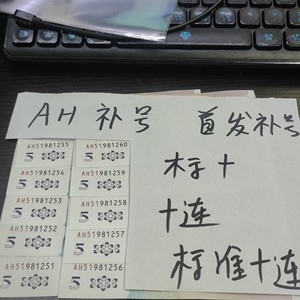 AH 补号 首发补号
标十
十连
标准十连
AH51981255
5
AH51981254
5
AH51981253
5
AH51981252
5
AH51981251
5
AH51981260
5
AH51981259
5
AH51981258
5
AH51981257
5
AH51981256
5